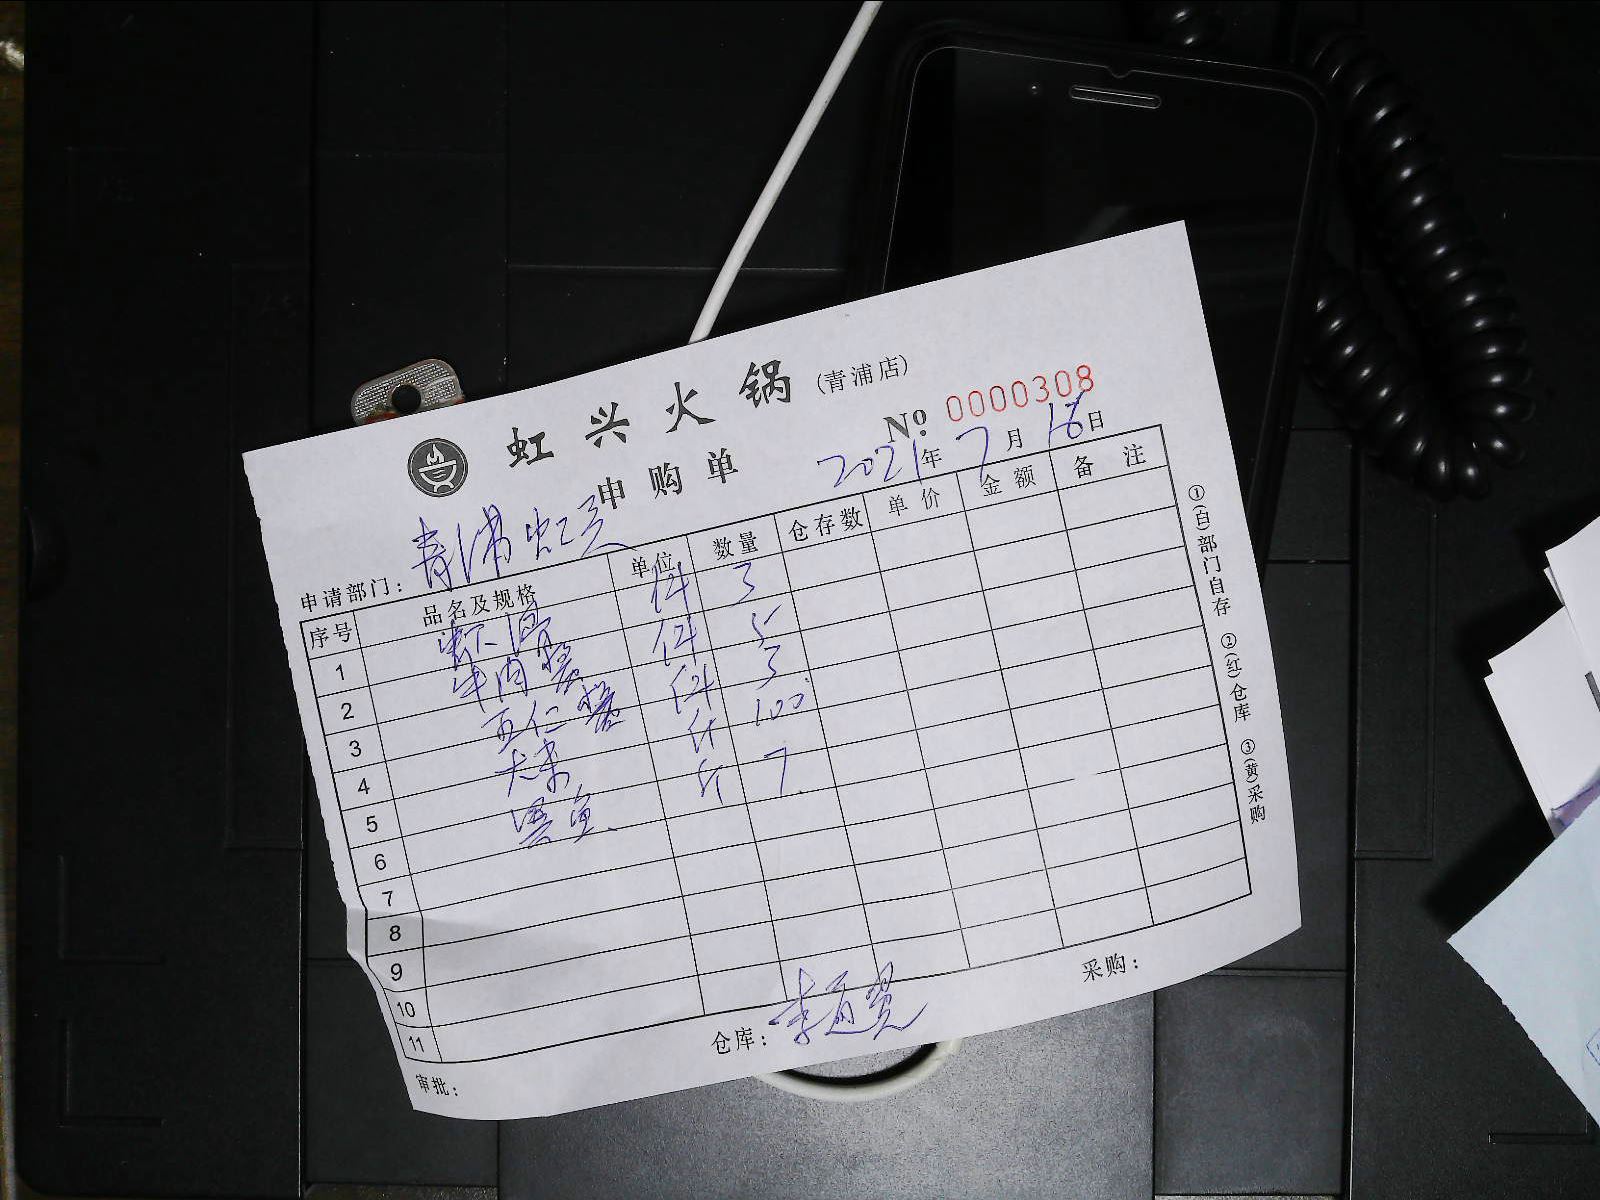 虹兴火锅(青浦店)
申购单
No: 0000308
2021年7月16日
申请部门: 青浦虹兴
序号 品名及规格 单位 数量 仓存数 单价 金额 备注
1 虾滑 件 3
2 牛肉酱 件 5
3 五仁酱 件 3
4 大米 斤 100
5 黑鱼 斤 7
6
7
8
9
10
11
审批: 仓库: 采购:
①(白)部门自存 ②(红)仓库 ③(黄)采购